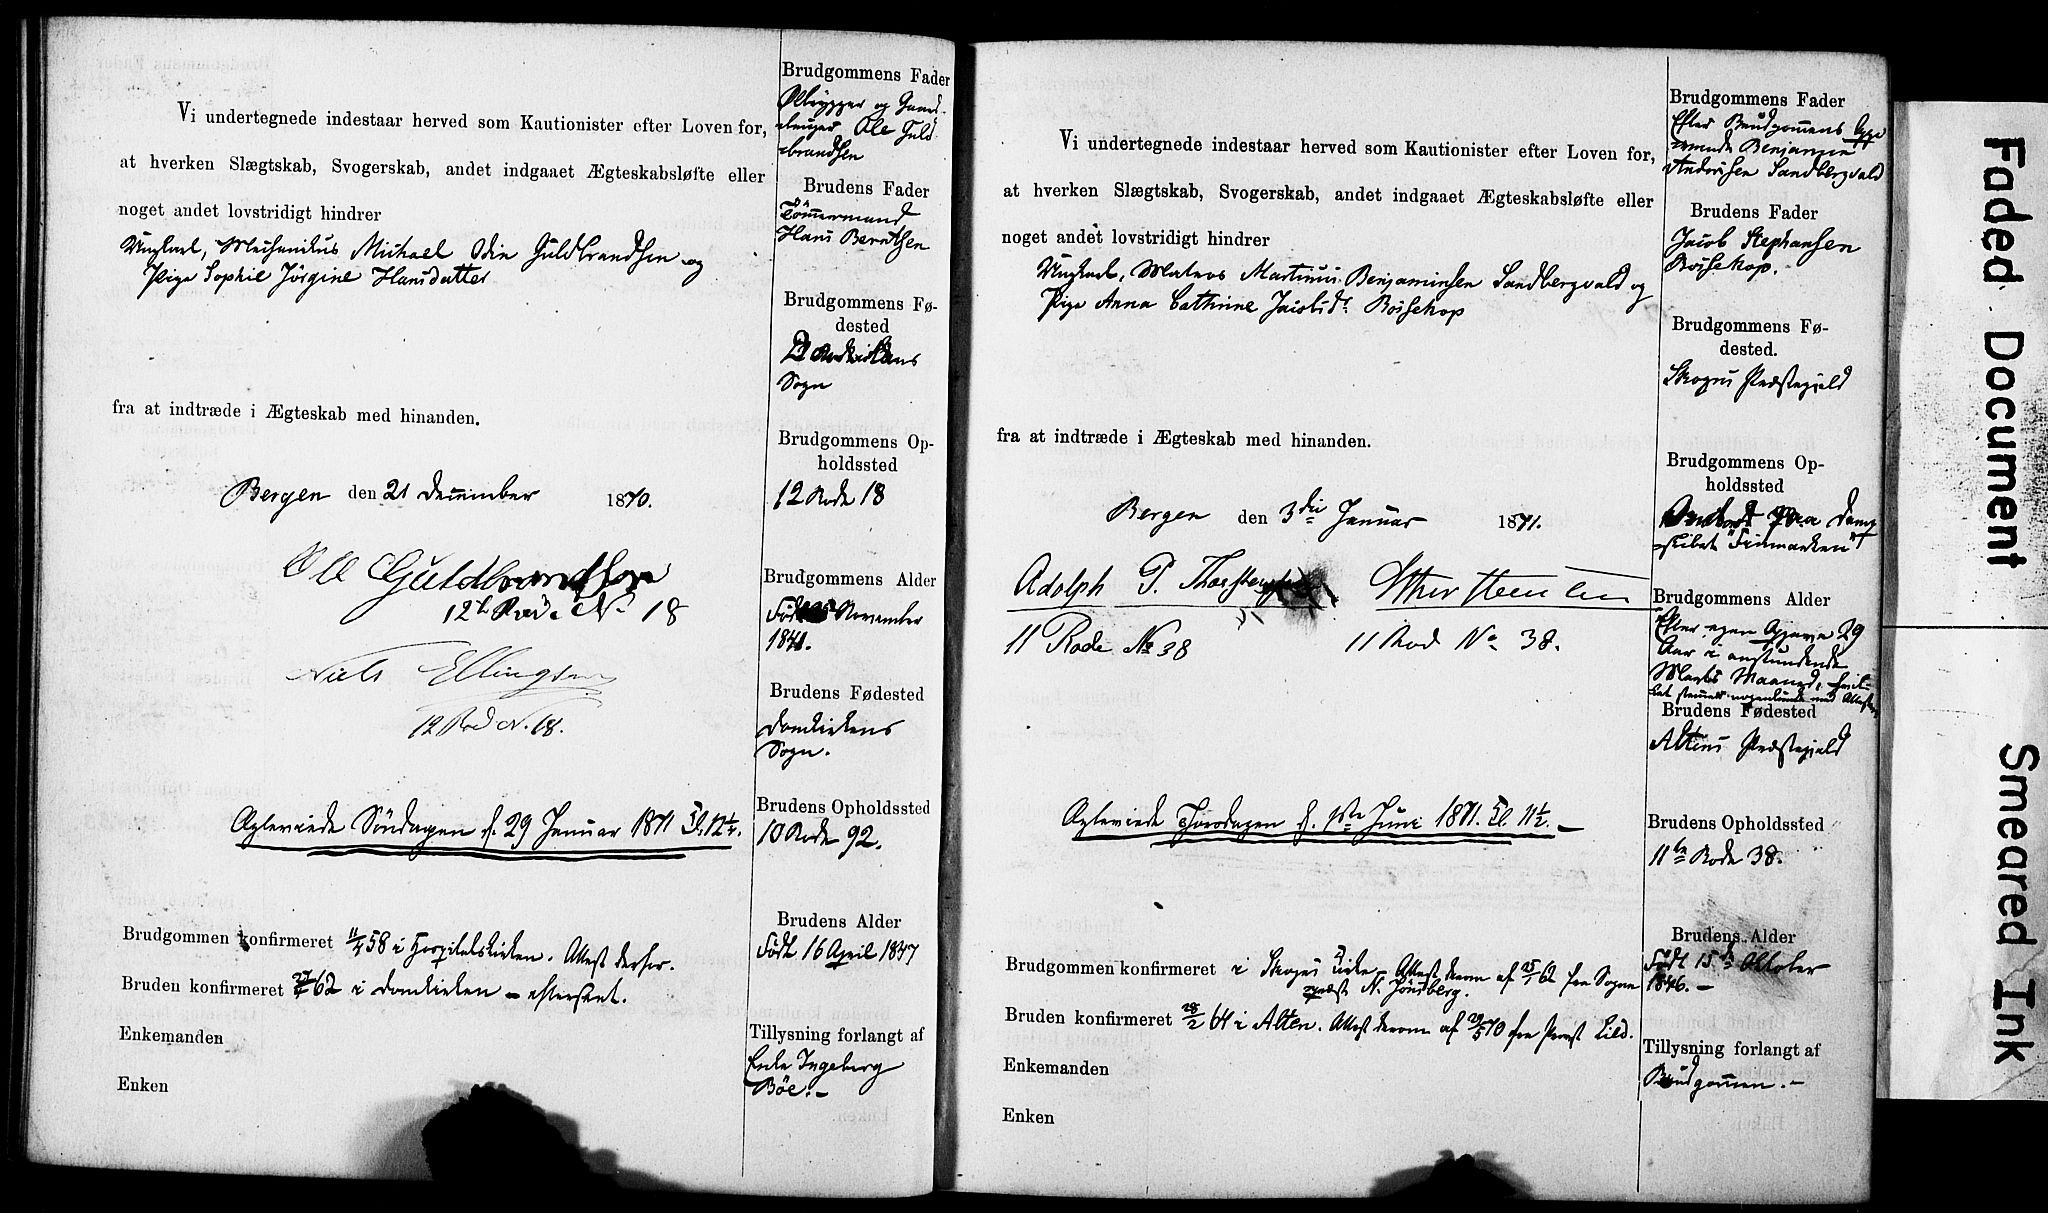 Vi undertegnede indestaar herved som Kautionister efter Loven for,
at hverken Slægtskab, Svogerskab, andet indgaaet Ægteskabsløfte eller
noget andet lovstridigt hindrer
Ungkarl, Mechanikus Michael Odin Guldbrandsen og
Pige Sophie Jörgine Hansdatter
fra at indtræde i Ægteskab med hinanden.
Bergen den 21 December 1870.
Ole Guldbrandsen
12te Rode No 18
Niels Ellingsen
12 Rod N. 18.
Agteviede Söndagen d. 29 Januar 1871 Kl. 12½.
Brudgommen konfirmeret 11/4 58 i Hospitalskirken. Attest derfor.
Bruden konfirmeret 27/4 62 i Domkirken – eftersent.
Enkemanden
Enken
Brudgommens Fader
Ølbrygger og Gaard-
bruger Ole Guld-
brandsen
Brudens Fader
Tömmermand
Hans Berntsen
Brudgommens Fø-
dested
Domkirkens
Sogn
Brudgommens Op-
holdssted
12 Rode 18
Brudgommens Alder
Født November
1841.
Brudens Fødested
Domkirkens
Sogn.
Brudens Opholdssted
10 Rode 92.
Brudens Alder
Født 16 April 1847
Tillysning forlangt af
Enke Ingeborg
Böe.–
Vi undertegnede indestaar herved som Kautionister efter Loven for,
at hverken Slægtskab, Svogerskab, andet indgaaet Ægteskabsløfte eller
noget andet lovstridigt hindrer
Ungkarl, Matros Martinus Benjaminsen Sandbergvald og
Pige Anna Cathrine Jacobsdr Bossekop
fra at indtræde i Ægteskab med hinanden.
Bergen den 3die Januar 1871.
Adolph P.
11 Rode No 38
11 Rod No 38.
Agteviede Torsdagen d. 1ste Juni 1871. Kl. 11½.–
Brudgommen konfirmeret i Skogns Kirke. Attest derom af 25/1 62 fra Sogne
præst N. Jönsberg.
Bruden konfirmeret 28/2 64 i Alten. Attest derom af 29/5 70 fra Præst Kild.
Enkemanden
Enken
Brudgommens Fader
Efter Brudgommens Opgi
vende Benjamin
Andersen Sandbergvald
Brudens Fader
Jacob Stephansen
Bossekop.
Brudgommens Fø-
dested.
Skogns Præstegjeld
Brudgommens Op-
holdssted
Ombord paa Damp
skibet "Finmarken"
Brudgommens Alder
Efter egen Opgave 29
Aar i anstundende
Marts Maaned, hvil-
ket stemmer nogenlunde med Attesten
Brudens Fødested
Altens Præstegjeld
Brudens Opholdssted
11te Rode 38.
Brudens Alder
Født 15de Oktober
1846.–
Tillysning forlangt af
Brudgommen.–
Faded Document
Smeared Ink